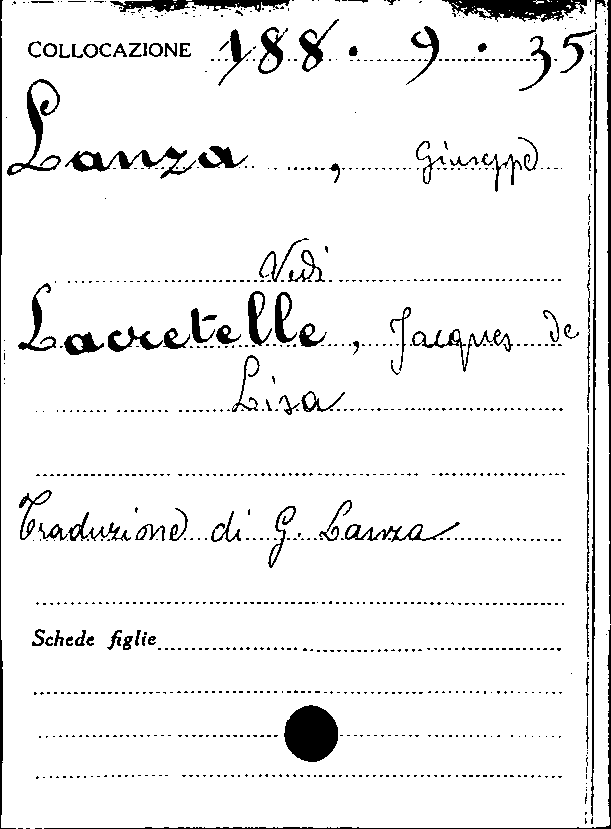 COLLOCAZIONE 188. 9. 35
Lanza, Giuseppe
Vedi
Lacretelle, Jacques de
Lisa
Traduzione di G. Lanza
Schede figlie